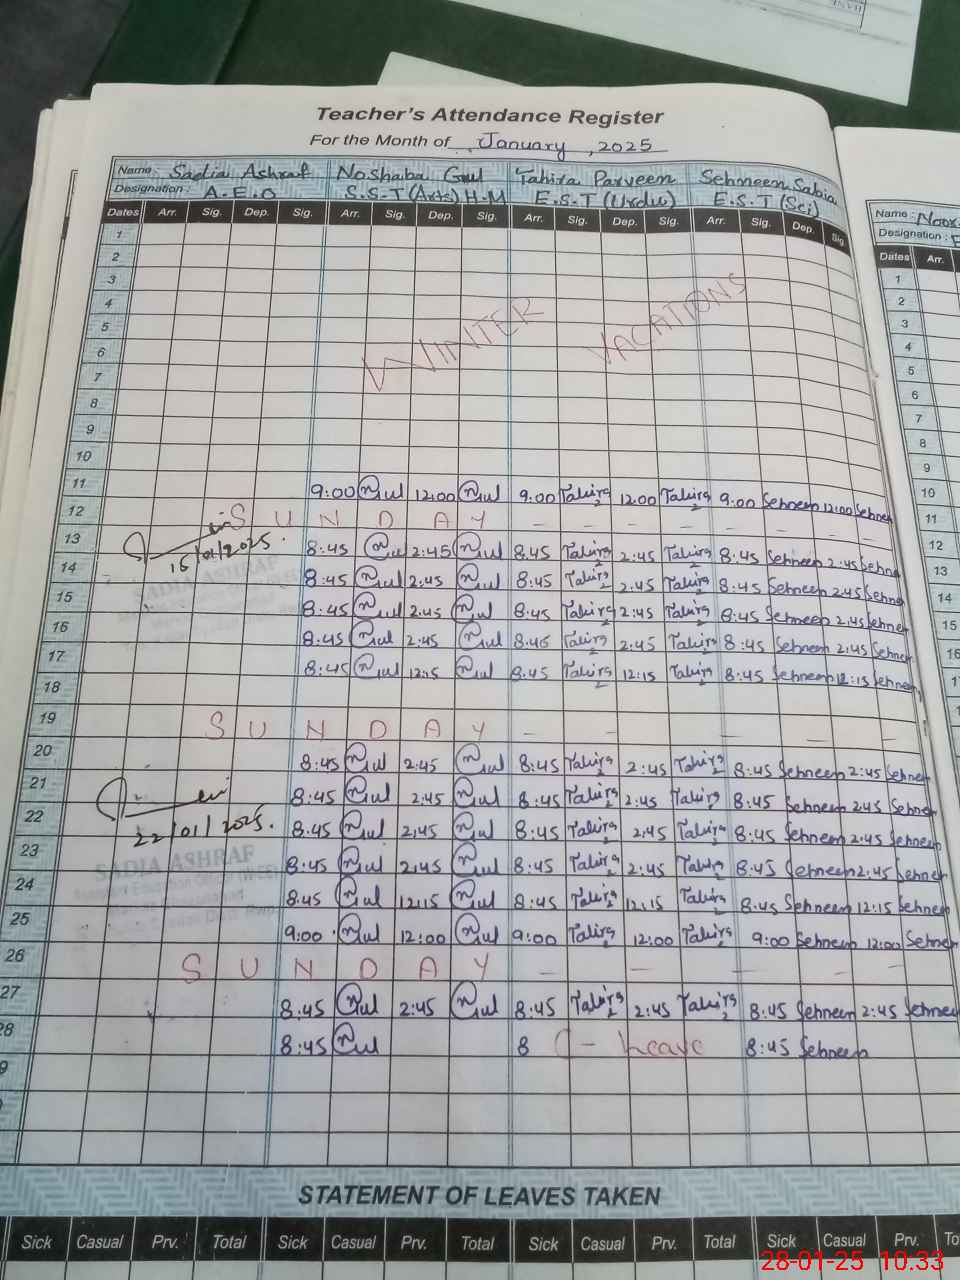 Teacher's Attendance Register
For the Month of January, 2025
Name: Sadia Ashraf Noshaba Gul Tahira Parveen Sehneen Sabia
Designation: A.E.O S.S.T (Arts) H.M E.S.T (Urdu) E.S.T (Sci)
Dates Arr. Sig. Dep. Sig. Arr. Sig. Dep. Sig. Arr. Sig. Dep. Sig. Arr. Sig. Dep. Sig.
1
2
3
4
5
6
7
8
9
10
WINTER VACATIONS
11 9:00 Gul 12:00 Gul 9:00 Tahira 12:00 Tahira 9:00 Sehneen 12:00 Sehneen
12 S U N D A Y – – – – – –
13 8:45 Gul 2:45 Gul 8:45 Tahira 2:45 Tahira 8:45 Sehneen 2:45 Sehneen
15/01/2025.
SADIA ASHRAF
14 8:45 Gul 2:45 Gul 8:45 Tahira 2:45 Tahira 8:45 Sehneen 2:45 Sehneen
15 8:45 Gul 2:45 Gul 8:45 Tahira 2:45 Tahira 8:45 Sehneen 2:45 Sehneen
16 8:45 Gul 2:45 Gul 8:45 Tahira 2:45 Tahira 8:45 Sehneen 2:45 Sehneen
17 8:45 Gul 12:15 Gul 8:45 Tahira 12:15 Tahira 8:45 Sehneen 12:15 Sehneen
18
19 S U N D A Y – – – – –
20 8:45 Gul 2:45 Gul 8:45 Tahira 2:45 Tahira 8:45 Sehneen 2:45 Sehneen
21 8:45 Gul 2:45 Gul 8:45 Tahira 2:45 Tahira 8:45 Sehneen 2:45 Sehneen
22/01/2025.
22 8:45 Gul 2:45 Gul 8:45 Tahira 2:45 Tahira 8:45 Sehneen 2:45 Sehneen
SADIA ASHRAF
23 8:45 Gul 2:45 Gul 8:45 Tahira 2:45 Tahira 8:45 Sehneen 2:45 Sehneen
24 8:45 Gul 12:15 Gul 8:45 Tahira 12:15 Tahira 8:45 Sehneen 12:15 Sehneen
25 9:00 Gul 12:00 Gul 9:00 Tahira 12:00 Tahira 9:00 Sehneen 12:00 Sehneen
26 S U N D A Y – – – – –
27 8:45 Gul 2:45 Gul 8:45 Tahira 2:45 Tahira 8:45 Sehneen 2:45 Sehneen
28 8:45 Gul 8 C - Leave 8:45 Sehneen
STATEMENT OF LEAVES TAKEN
Sick Casual Prv. Total Sick Casual Prv. Total Sick Casual Prv. Total Sick Casual Prv.
Name:
Designation:
Dates Arr.
1
2
3
4
5
6
7
8
9
10
11
12
13
14
15
16
28-01-25 10:33